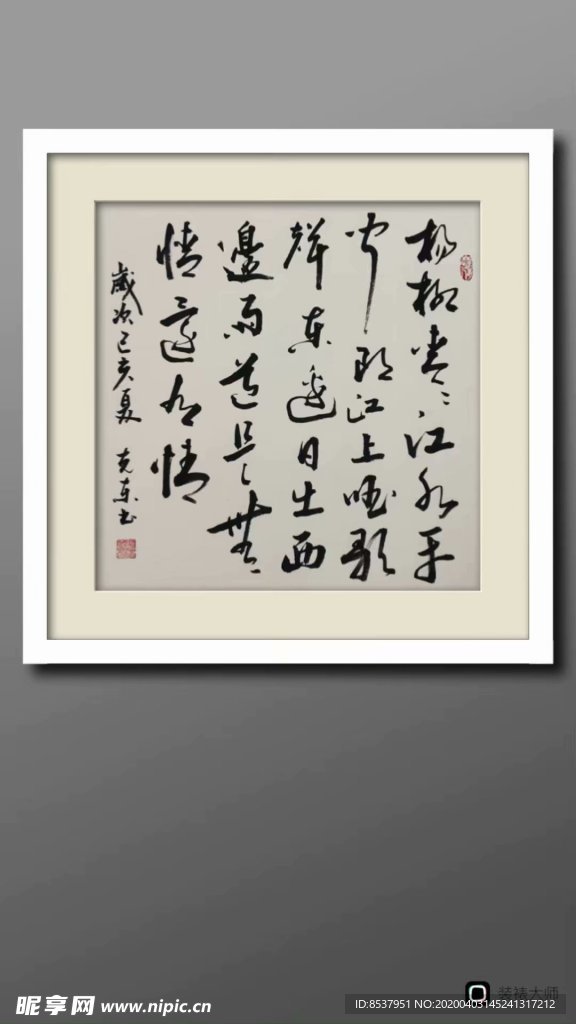 杨柳青々江水平
闻郎江上唱歌
聲東邊日出西
邊雨道是無
情還有情
歲次己亥夏 克東書
装裱大师
昵享网 www.nipic.cn
ID:8537951 NO:20200403145241317212